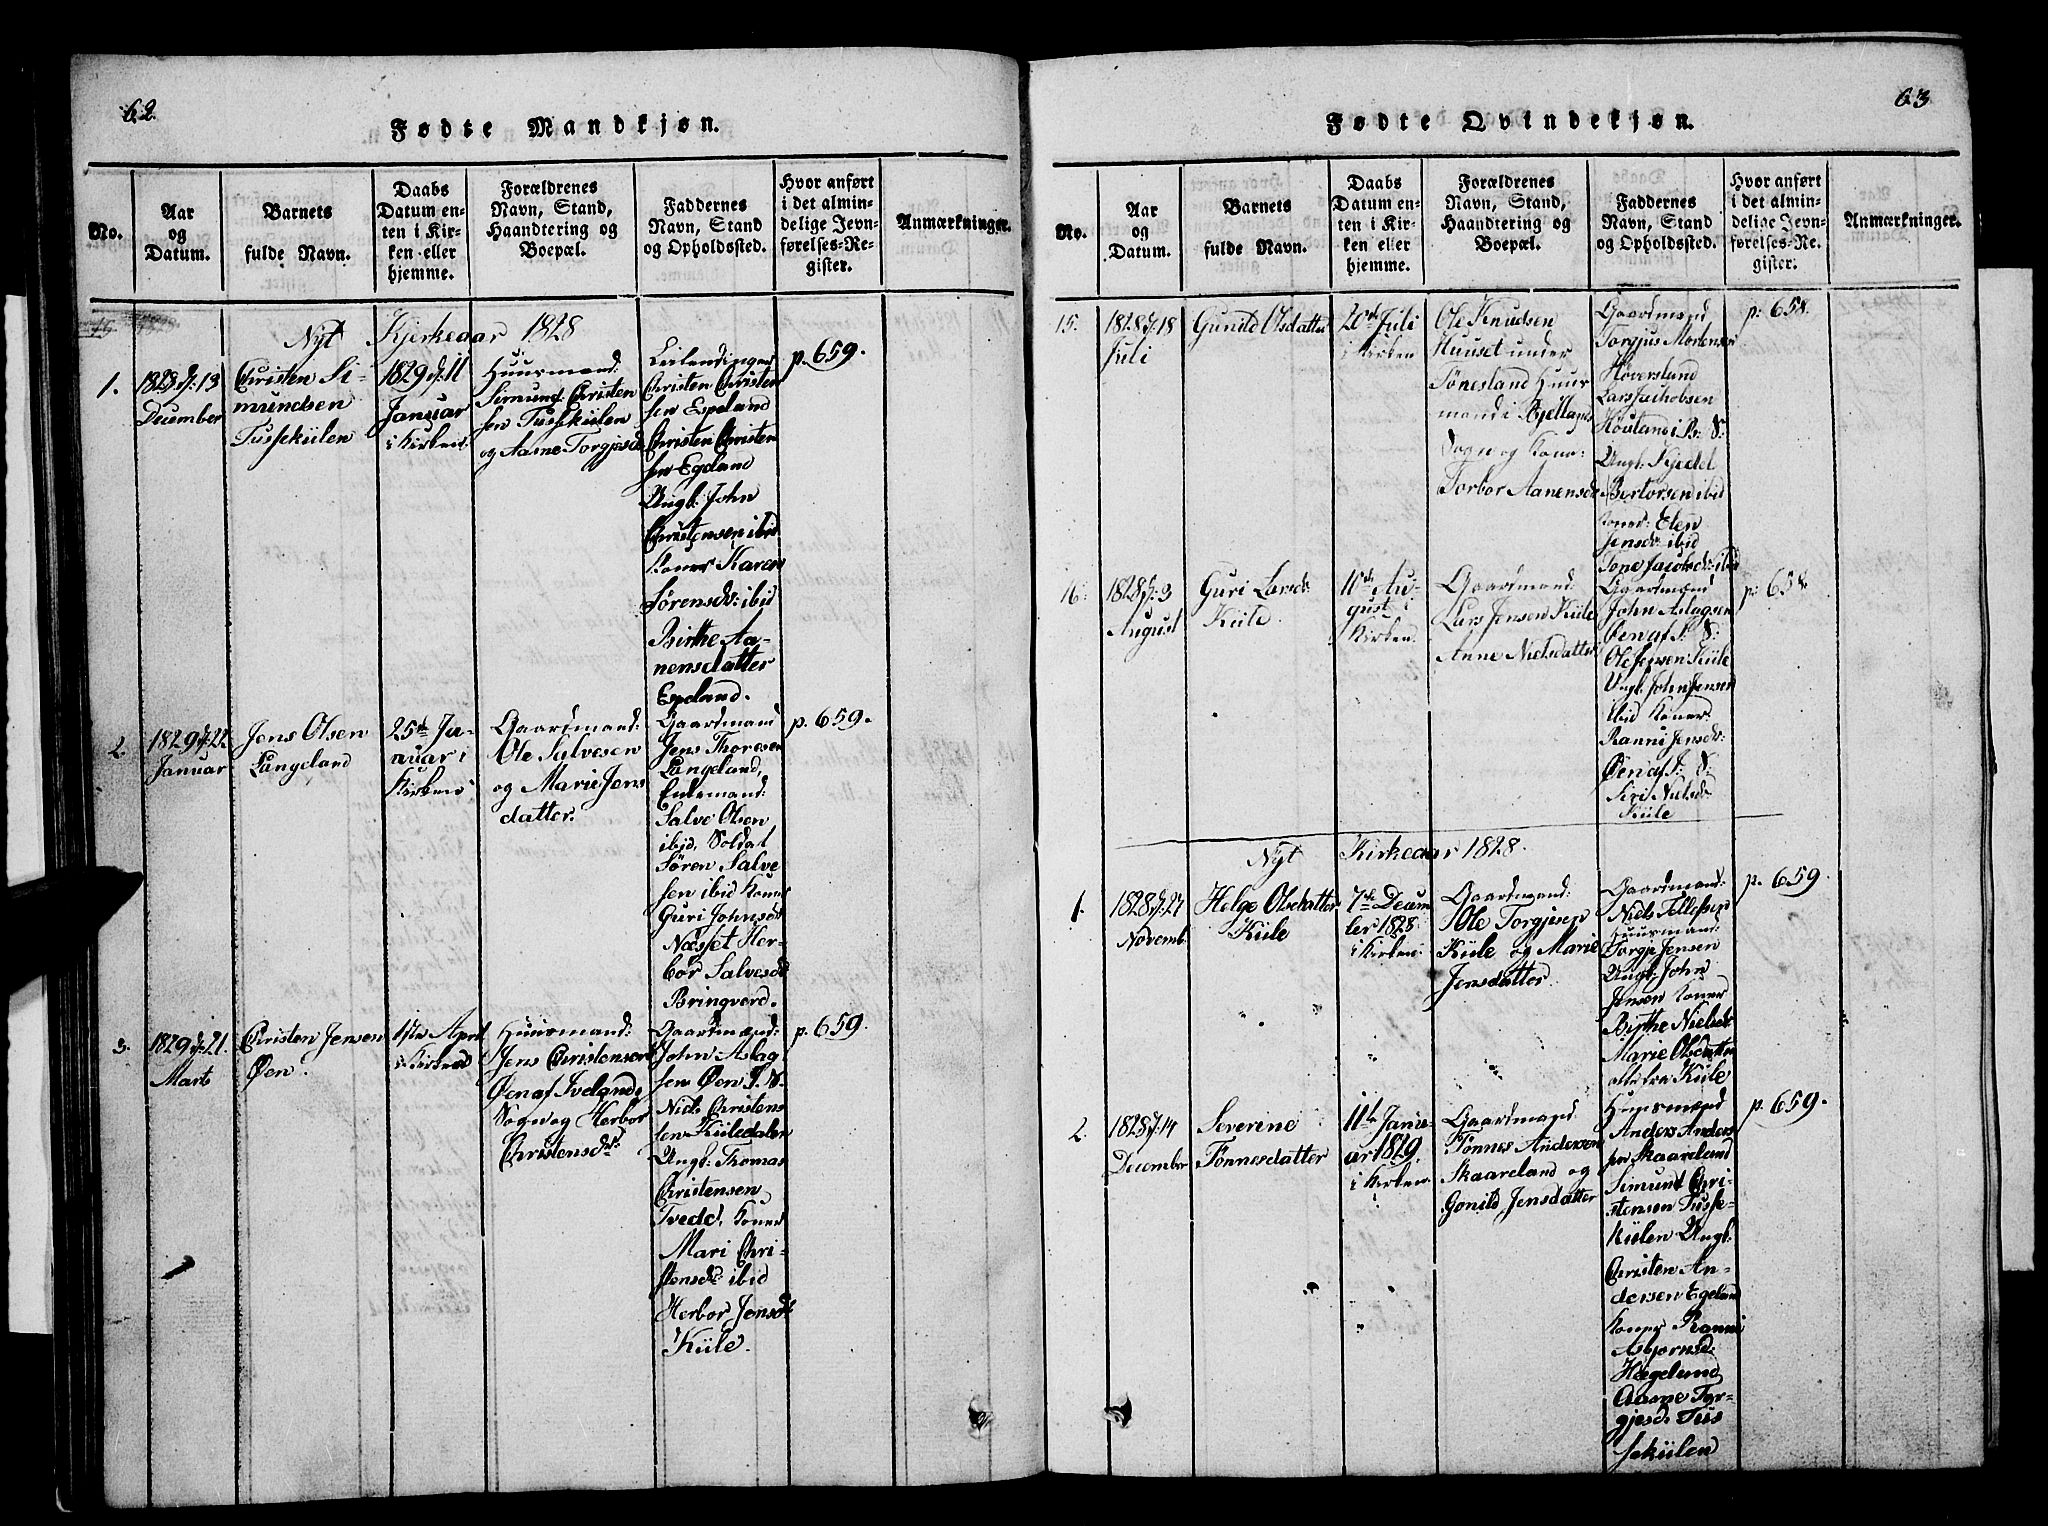 62.
Fødte Mandkjøn.
No.
Aar
og
Datum.
Barnets
fulde Navn.
Daabs
Datum en-
ten i Kir-
ken eller
hjemme.
Forældrenes
Navn, Stand,
Haandtering og
Boepæl.
Faddernes
Navn, Stand
og Opholdssted.
Hvor anført
i det almin-
delige Jevn-
førelses-Re-
gister.
Anmærkninger.
Nyt Kjerkeaar 1828
1.
1828 d: 13
December
Christen Si-
mundsen
Tussekiilen
1829 d. 11
Januar
i Kirken
Huusmand:
Simund Christen
sen Tussekiilen
og Aasne Torgjusdr
Leilendinger
Christen Christen
sen Espeland
Christen Christen
sen Egeland
Ungk: John
Christensen ibid
Koner Karen
Sørensdr: ibid
Birthe Aa-
nensdatter
Espeland.
p. 659.
2.
1829 d: 22
Januar
Jens Olsen
Langeland
25de Ja-
nuar i
Kirken
Gaardmand:
Ole Salvesen
og Marie Jens
datter.
Gaardmand
Jens Thoresen
Langeland,
Enkemand:
Salve Olsen
ibid, Soldat
Søren Salve
sen ibid Koner
Guri Johnsdr
Næsset Her-
bor Salvesdr
Bringverd.
p. 659.
3.
1829 d: 21.
Marts
Christen Jensen
Øen.
1ste April
i Kirken
Huusmand:
Jens Christensen
Øen af Ivelands
Sogn og Herbor
Christensdr:
Gaardmænd:
John Aslag
sen Øen I. S.
Niels Christens
sen Kiiledalen
Ungk: Thomas
Christensen
Tvedt, Koner
Mari Chri-
stensdr ibid
Herbor Jensdr
Kiile.
p. 659.
63
Fødte Qvindekjøn.
No.
Aar
og
Datum.
Barnets
fulde Navn.
Daabs
Datum en-
ten i Kir-
ken eller
hjemme.
Forældrenes
Navn, Stand,
Haandtering og
Boepæl.
Faddernes
Navn, Stand
og Opholdssted.
Hvor anført
i det almin-
delige Jevn-
førelses-Re-
gister.
Anmærkninger.
15.
1828 d. 18
Juli
Gunild Olsdatter
20de Juli
i Kirken
Ole Knudsen
Huuset under
Sønesland Huus
mand i Bjellands
Sogn og Kone
Torbor Aanensdr
Gaardmænd
Torgjus Mortensen
Høversland
Lars Jachobsen
i B: S:
Ungk: Kjedel
Bertorsen ibid
Koner: Elen
Jensdr ibid
Tone Jacobsdr: ibid
p: 658.
16.
1828 d: 3
August
Guri Larsdr
Kiile.
10de Au-
gust i
Kirken.
Gaardmand:
Lars Jensen Kiile
Anne Nielsdatter
Gaardmænd
John Aslagsen
Øen af I: S:
Ole Jensen Kiile
Ungk. John Jensen
ibid Koner
Ranni Jensdr:
Øen af I: S:
Siri Nielsdr
Kiile
p: 658
Nyt Kirkeaar 1828.
1.
1828 d: 27
Novemb.
Helge Olsdatter
Kiile
7de Decem
ber 1828
i Kirken.
Gaardmand:
Ole Torgjusen
Kiile og Marie
Jensdatter
Gaardmand:
Niels Tellefsen
Huusmand:
Torge Jensen
Ungk. John
Jensen Koner
Birthe Nielsdr
Marie Olsdatter
alle fra Kiile
p. 659.
2.
1828 d: 14
December
Severine
Tønnesdatter
11te Janu-
ar 1829.
i Kirken.
Gaardmand
Tønnes Andersen
Skaareland og
Gonild Jensdatter
Huusmænd
Anders Anders
sen Skaareland
Simund Chri-
stensen Tusse-
kiilen Ungk:
Christen An-
dersen Egeland
Koner Ranni
Asbjørnsd.
Hægeland
Aasne Tor-
gjusdr Tus
sekiilen
p. 659.